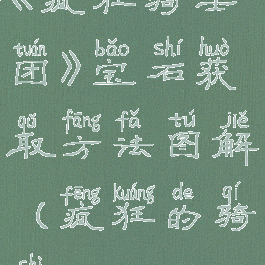 《疯狂骑士
tuán bǎo shí huò
团》宝石获
qǔ fāng fǎ tú jiě
取方法图解
fēng kuáng de qí
（疯狂的骑
shì